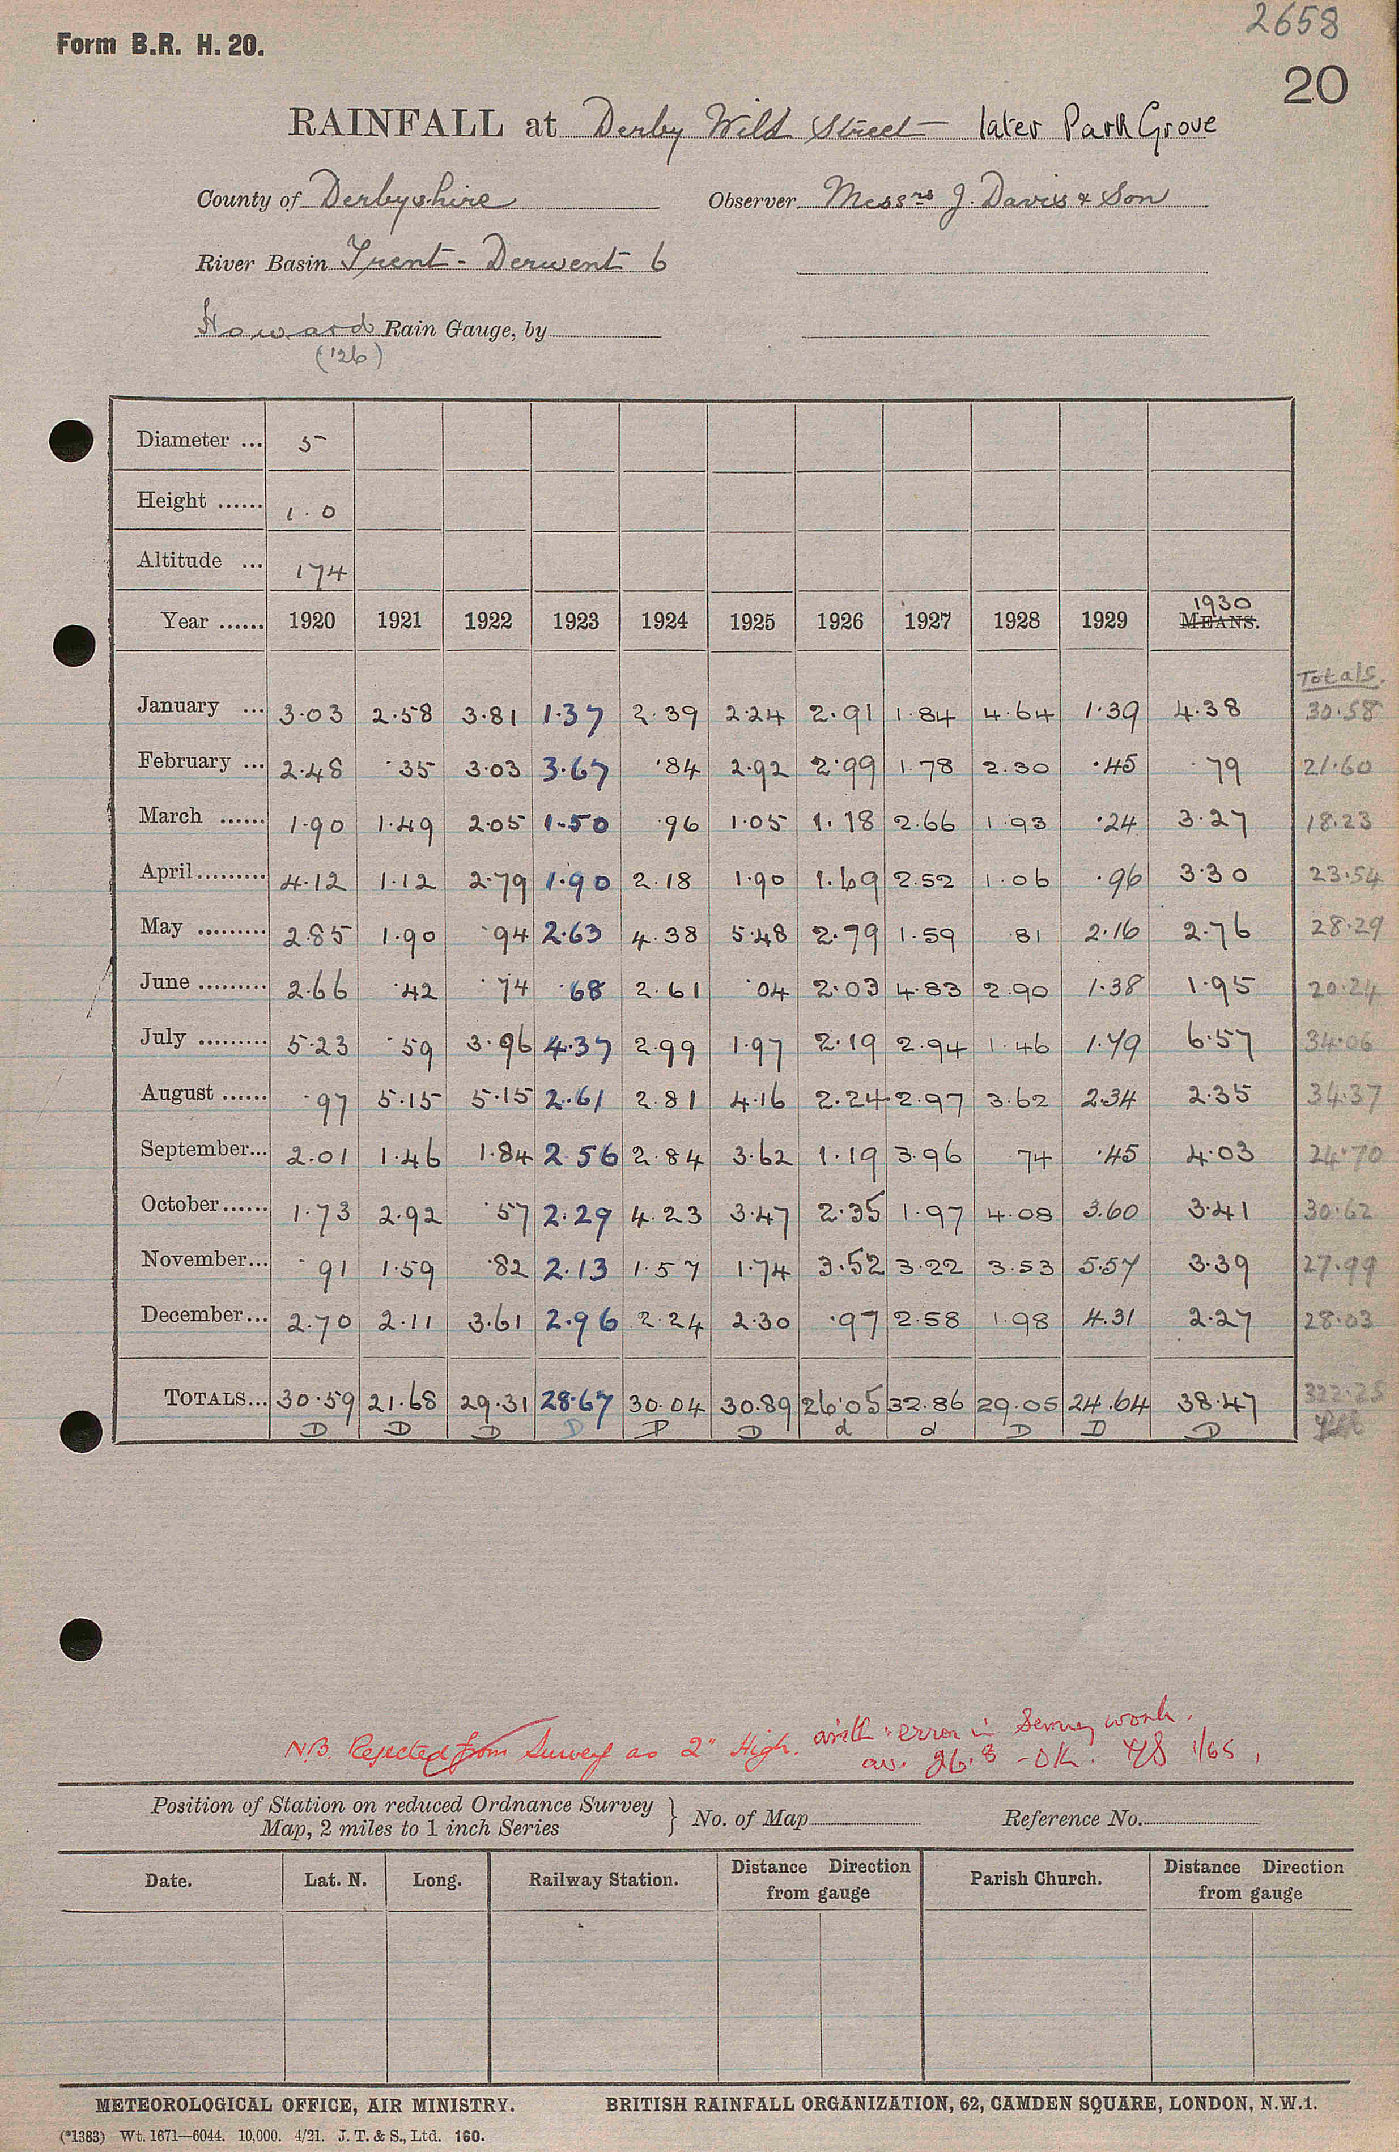 2658
Form B.R. H. 20.
20
RAINFALL at Derby Wild Street later Park Grove
County of Derbyshire Observer Messrs J. Davis & Son
River Basin Trent - Derwent 6
Howard Rain Gauge, by
(126)
Diameter ... 5
Height ...... 1.0
Altitude ... 174
1930
Year ...... 1920 1921 1922 1923 1924 1925 1926 1927 1928 1929 MEANS.
Totals.
January ... 3.03 2.58 3.81 1.37 2.39 2.24 2.91 1.84 4.64 1.39 4.38 30.58
February ... 2.48 .35 3.03 3.67 .84 2.92 2.99 1.78 2.30 .45 .79 21.60
March ...... 1.90 1.49 2.05 1.50 .96 1.05 1.18 2.66 1.93 .24 3.27 18.23
April ......... 4.12 1.12 2.79 1.90 2.18 1.90 1.69 2.52 1.06 .96 3.30 23.54
May ......... 2.85 1.90 .94 2.63 4.38 5.48 2.79 1.59 .81 2.16 2.76 28.29
June ......... 2.66 .42 .74 .68 2.61 .04 2.03 4.83 2.90 1.38 1.95 20.24
July ......... 5.23 .59 3.96 4.37 2.99 1.97 2.19 2.94 1.46 1.79 6.57 34.06
August ...... .97 5.15 5.15 2.61 2.81 4.16 2.24 2.97 3.62 2.34 2.35 34.37
September... 2.01 1.46 1.84 2.56 2.84 3.62 1.19 3.96 .74 .45 4.03 24.70
October...... 1.73 2.92 .57 2.29 4.23 3.47 2.35 1.97 4.08 3.60 3.41 30.62
November... .91 1.59 .82 2.13 1.57 1.74 3.52 3.22 3.53 5.57 3.39 27.99
December... 2.70 2.11 3.61 2.96 2.24 2.30 .97 2.58 1.98 4.31 2.27 28.03
TOTALS... 30.59 21.68 29.31 28.67 30.04 30.89 26.05 32.86 29.05 24.64 38.47 322.25
D D D D D D d d D D D
N.B. Rejected from Survey as 2" High. arith. error in Survey work.
av. 26.8 - OK. 1/65.
Position of Station on reduced Ordnance Survey
Map, 2 miles to 1 inch Series } No. of Map Reference No.
Date. Lat. N. Long. Railway Station. Distance Direction from gauge Parish Church. Distance Direction from gauge
METEOROLOGICAL OFFICE, AIR MINISTRY. BRITISH RAINFALL ORGANIZATION, 62, CAMDEN SQUARE, LONDON, N.W.1.
(*1383) Wt. 1671—6044. 10,000. 4/21. J. T. & S., Ltd. 160.